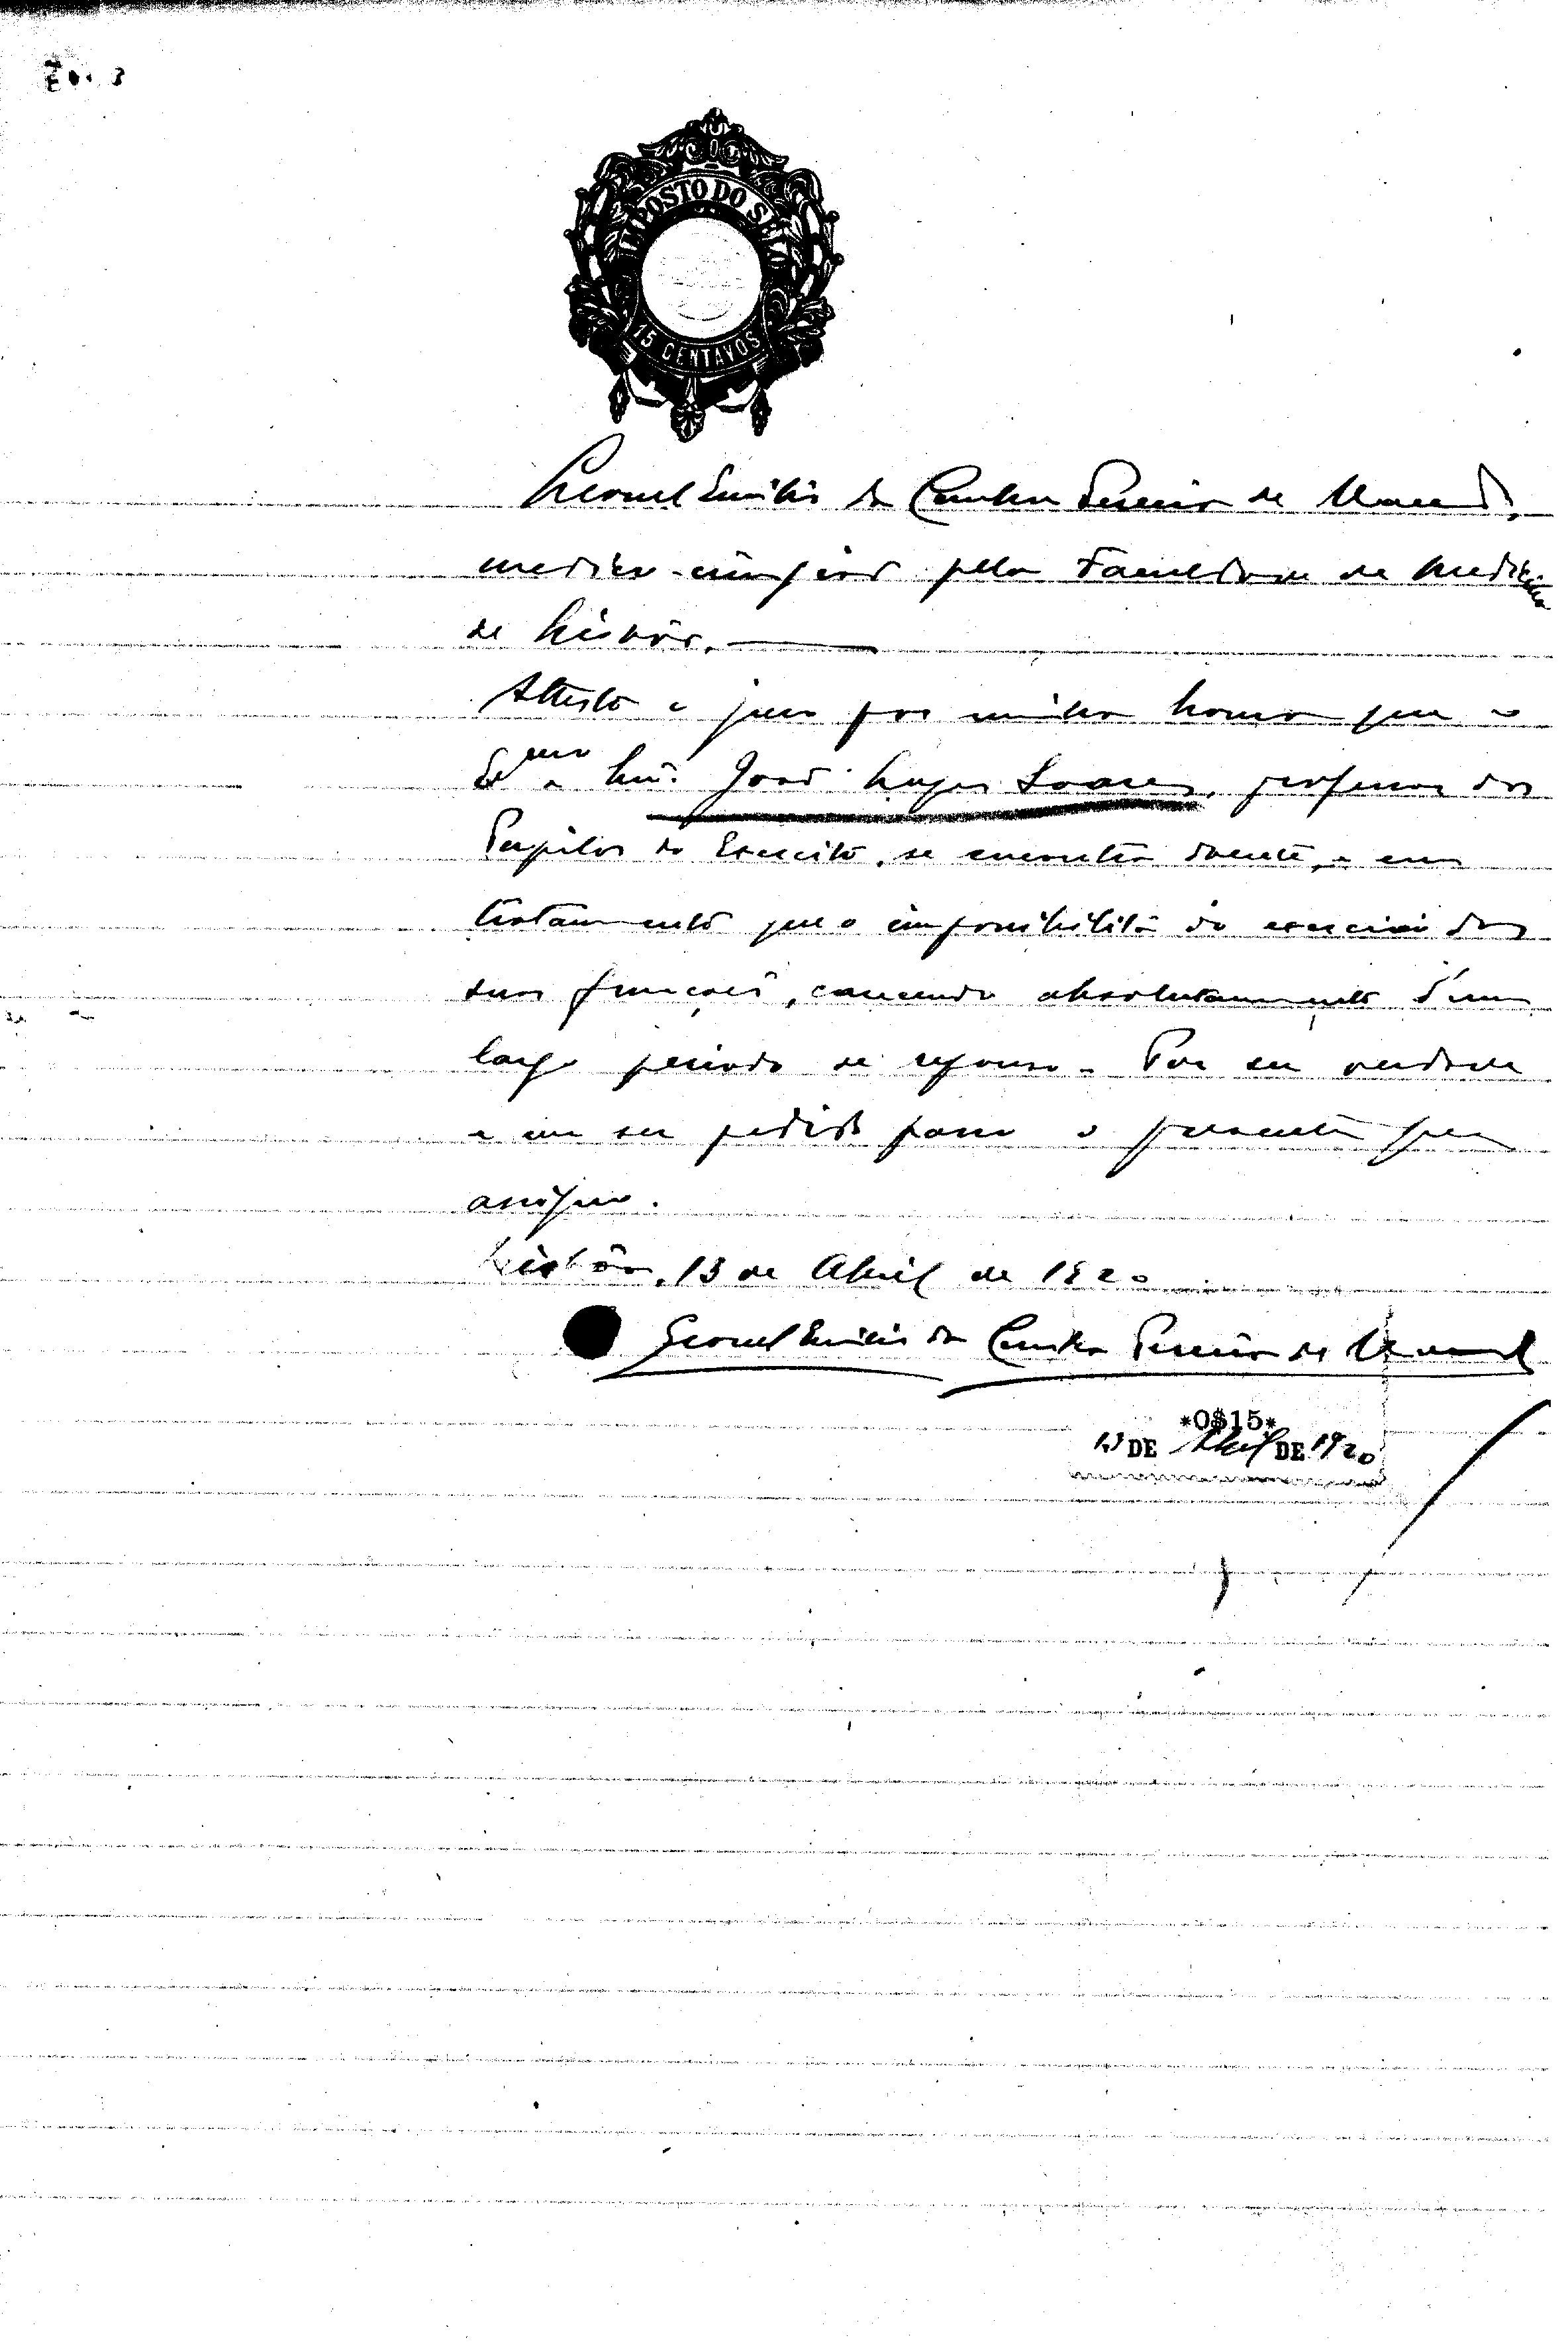 IMPOSTO DO SELO
15 CENTAVOS
Leonel Emilio da Cunha Pereira de Macedo,
medico-cirurgião pela Faculdade de Medicina
de Lisbôa.
Attesto e juro por minha honra que o
Exmo Snr. João Lopes Soares, professor dos
Pupilos do Exercito, se encontra doente, e em
tratamento que o impossibilita do exercicio das
suas funcções, carecendo absolutamente d'um
largo periodo de repouso. Por ser verdade
e em seu pedido passo o presente que
assigno.
Lisbôa, 13 de Abril de 1920
Leonel Emilio da Cunha Pereira de Macedo
*0$15*
13 DE Abril DE 1920